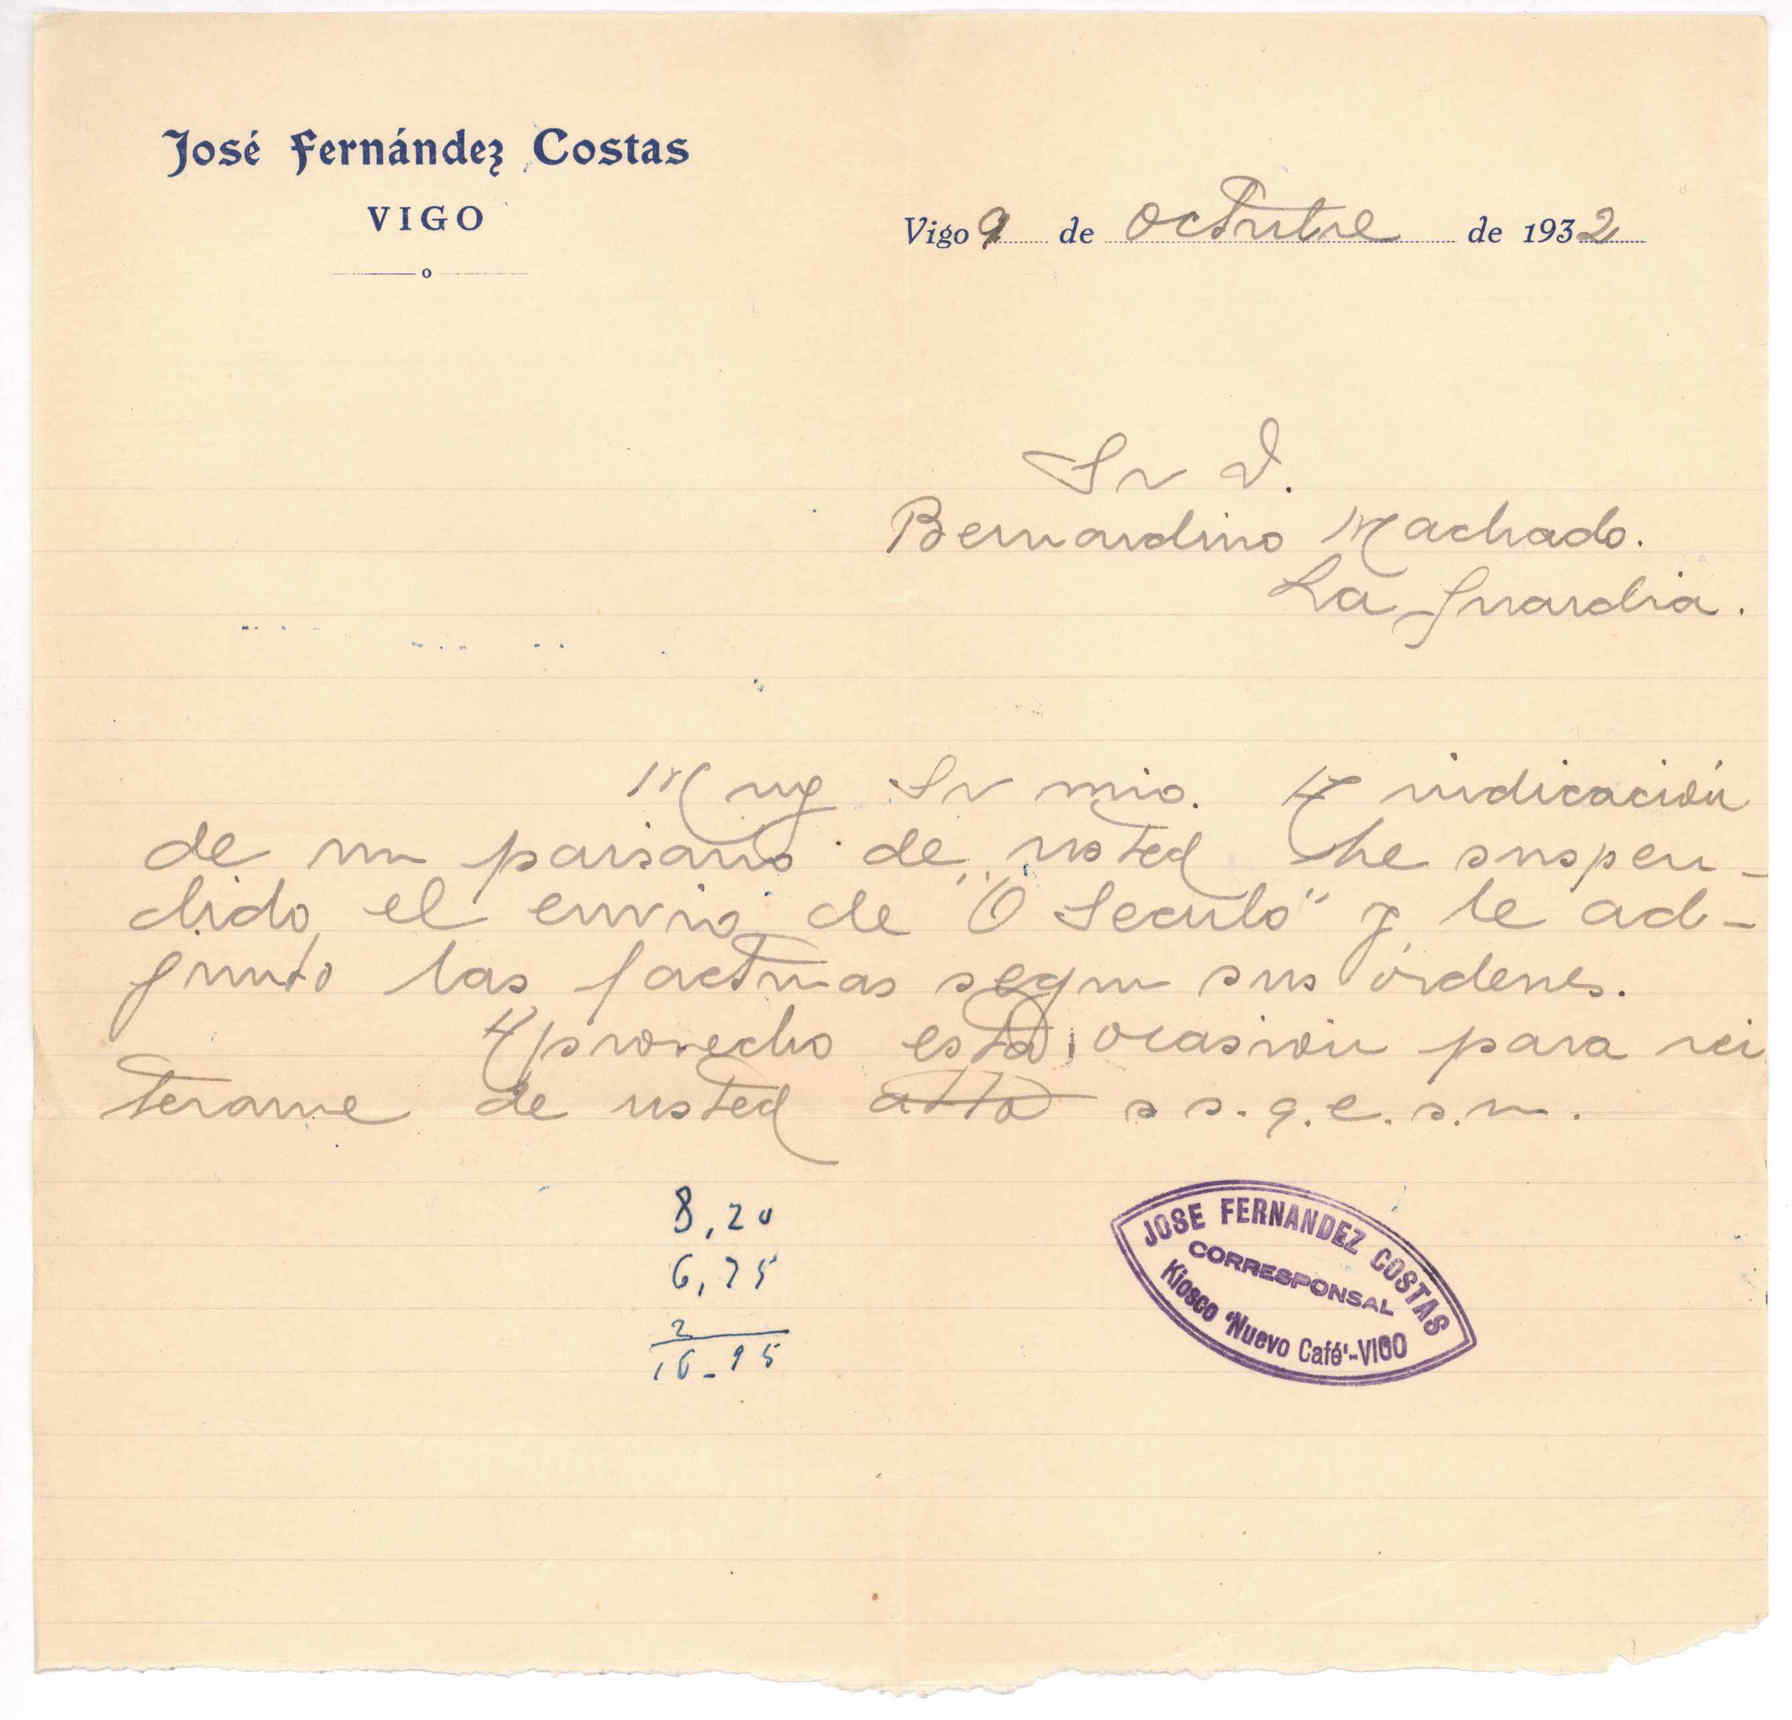 José Fernández Costas
VIGO
Vigo 9 de octubre de 1932
Sr D.
Bernardino Machado.
La Guardia.
Muy Sr mio. A indicación
de un paisano de usted he suspen-
dido el envio de "O Seculo" y le ad-
junto las facturas segun sus órdenes.
Aprovecho esta ocasión para rei
terarme de usted atto s s. q. e. s. m.
8,20
6,75
2
16-95
JOSE FERNANDEZ COSTAS
CORRESPONSAL
Kiosco 'Nuevo Café'-VIGO